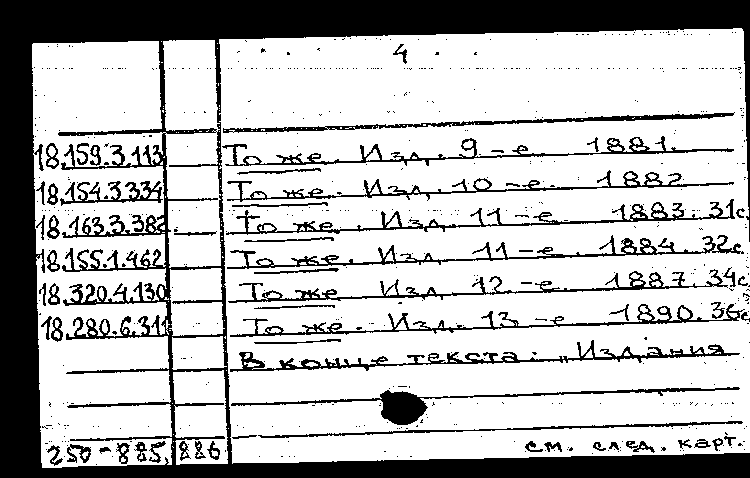 4
18.159.3.113 То же. Изд. 9-е. 1881.
18.154.3.334 То же. Изд. 10-е. 1882
18.163.3.382. То же. Изд. 11-е. 1883. 31с
18.155.1.462 То же. Изд. 11-е. 1884. 32с
18.320.4.130 То же Изд. 12-е. 1887. 34с
18.280.6.311 То же. Изд. 13-е 1890. 36с
В конце текста: „Издания
250-885, 886 см. след. карт.